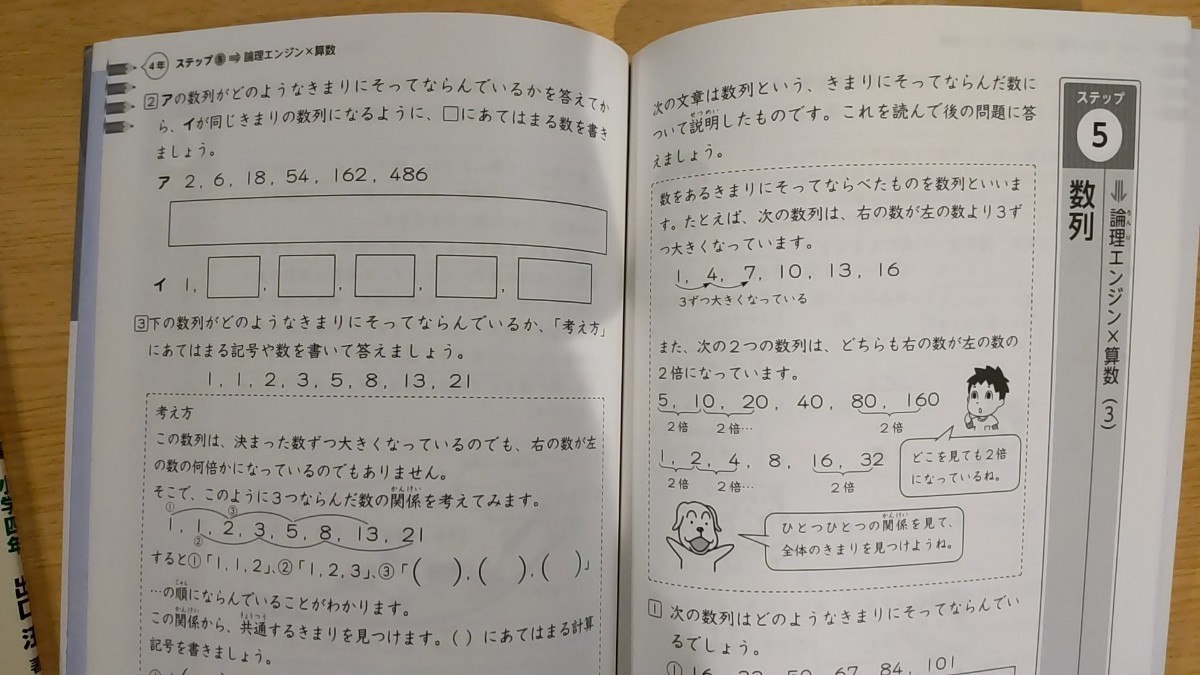 4年 ステップ5⇒論理エンジン×算数
2 アの数列がどのようなきまりにそってならんでいるかを答えてか
ら、イが同じきまりの数列になるように、□にあてはまる数を書き
ましょう。
ア 2, 6, 18, 54, 162, 486
イ 1, □, □, □, □, □
3 下の数列がどのようなきまりにそってならんでいるか、「考え方」
にあてはまる記号や数を書いて答えましょう。
1, 1, 2, 3, 5, 8, 13, 21
考え方
この数列は、決まった数ずつ大きくなっているのでも、右の数が左
の数の何倍かになっているのでもありません。
そこで、このように3つならんだ数の関係を考えてみます。
かんけい
① ③
1, 1, 2, 3, 5, 8, 13, 21
②
すると①「1, 1, 2」、②「1, 2, 3」、③「( ), ( ), ( )」
…の順にならんでいることがわかります。
じゅん
この関係から、共通するきまりを見つけます。( )にあてはまる計算
かんけい きょうつう
記号を書きましょう。
次の文章は数列という、きまりにそってならんだ数に
ついて説明したものです。これを読んで後の問題に答
せつめい
えましょう。
数をあるきまりにそってならべたものを数列といいま
す。たとえば、次の数列は、右の数が左の数より3ず
つ大きくなっています。
1, 4, 7, 10, 13, 16
3ずつ大きくなっている
また、次の2つの数列は、どちらも右の数が左の数の
2倍になっています。
5, 10, 20, 40, 80, 160
2倍 2倍… 2倍
1, 2, 4, 8, 16, 32
2倍 2倍… 2倍
どこを見ても2倍
になっているね。
ひとつひとつの関係を見て、
かんけい
全体のきまりを見つけようね。
1 次の数列はどのようなきまりにそってならんでい
るでしょう。
ステップ
5
数列
⇓論理エンジン×算数(3)
ろんり
小学四年
出口